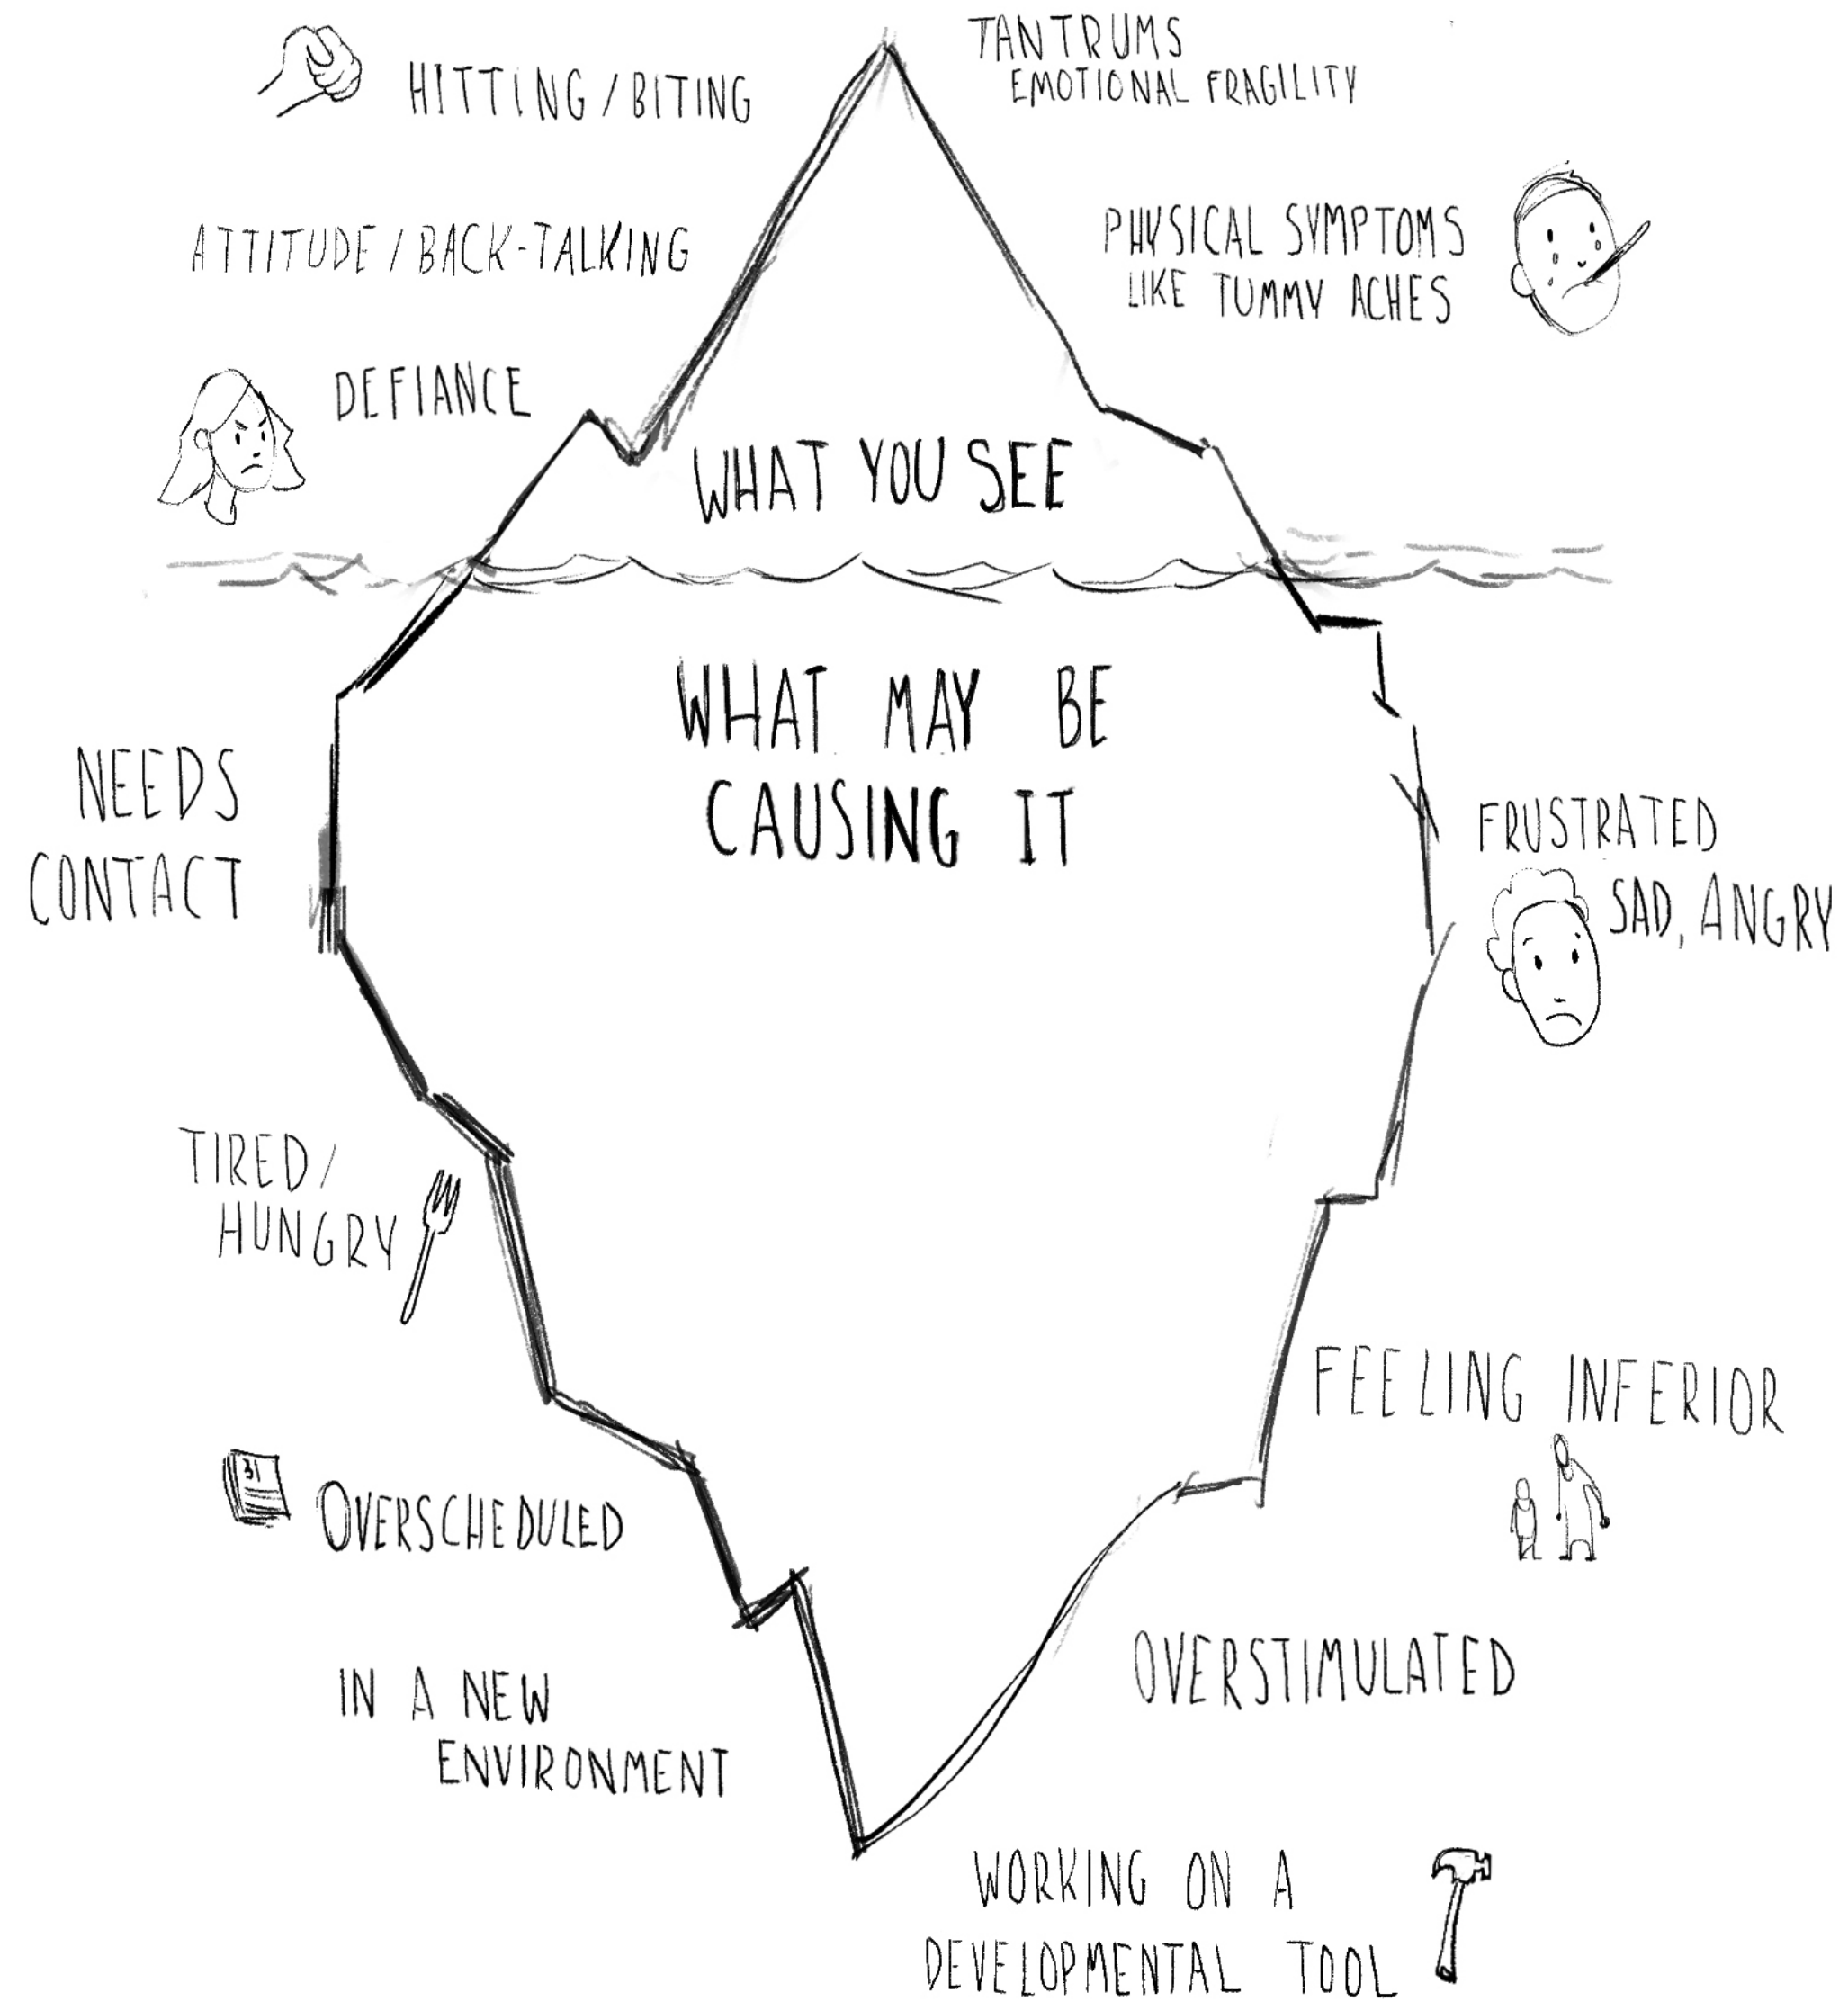 HITTING/BITING
TANTRUMS
EMOTIONAL FRAGILITY
ATTITUDE/BACK-TALKING
PHYSICAL SYMPTOMS
LIKE TUMMY ACHES
DEFIANCE
WHAT YOU SEE
WHAT MAY BE
CAUSING IT
NEEDS
CONTACT
FRUSTRATED
SAD, ANGRY
TIRED/
HUNGRY
FEELING INFERIOR
31
OVERSCHEDULED
OVERSTIMULATED
IN A NEW
ENVIRONMENT
WORKING ON A
DEVELOPMENTAL TOOL